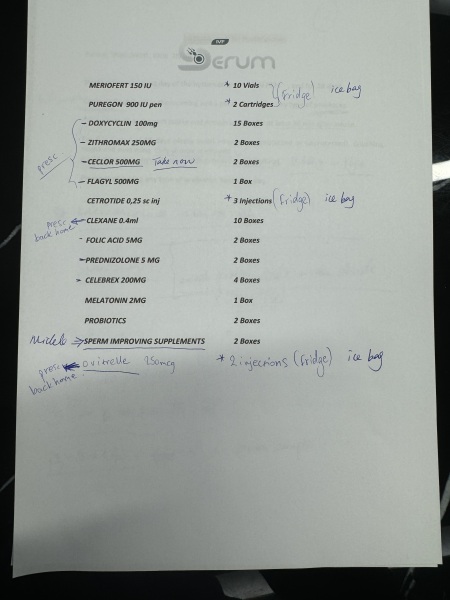 IVF
SERUM
MERIOFERT 150 IU * 10 Vials
(fridge) ice bag
PUREGON 900 IU pen * 2 Cartridges
– DOXYCYCLIN 100mg 15 Boxes
– ZITHROMAX 250MG 2 Boxes
presc
– CECLOR 500MG Take now 2 Boxes
– FLAGYL 500MG 1 Box
CETROTIDE 0,25 sc inj * 3 Injections (fridge) ice bag
presc back home CLEXANE 0.4ml 10 Boxes
- FOLIC ACID 5MG 2 Boxes
PREDNIZOLONE 5 MG 2 Boxes
CELEBREX 200MG 4 Boxes
MELATONIN 2MG 1 Box
PROBIOTICS 2 Boxes
SPERM IMPROVING SUPPLEMENTS 2 Boxes
presc back home. Ovitrelle 250mcg * 2 injections (fridge) ice bag